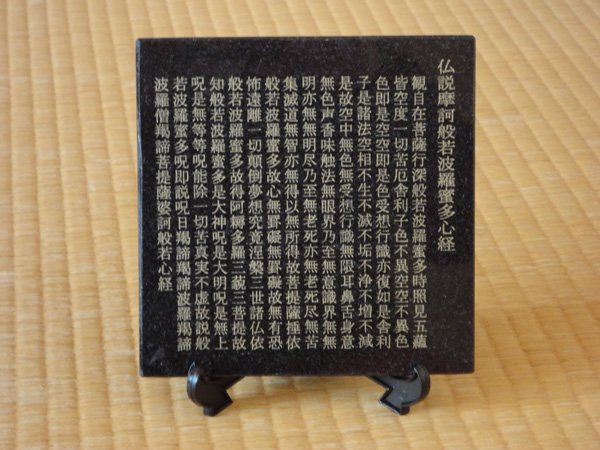 仏説摩訶般若波羅蜜多心経
観自在菩薩行深般若波羅蜜多時照見五蘊
皆空度一切苦厄舎利子色不異空空不異色
色即是空空即是色受想行識亦復如是舎利
子是諸法空相不生不滅不垢不浄不増不減
是故空中無色無受想行識無限耳鼻舌身意
無色声香味触法無眼界乃至無意識界無無
明亦無無明尽乃至無老死亦無老死尽無苦
集滅道無智亦無得以無所得故菩提薩埵依
般若波羅蜜多故心無罣礙無罣礙故無有恐
怖遠離一切顛倒夢想究竟涅槃三世諸仏依
般若波羅蜜多故得阿耨多羅三藐三菩提故
知般若波羅蜜多是大神呪是大明呪是無上
呪是無等等呪能除一切苦真実不虚故説般
若波羅蜜多呪即説呪曰羯諦羯諦波羅羯諦
波羅僧羯諦菩提薩婆訶般若心経